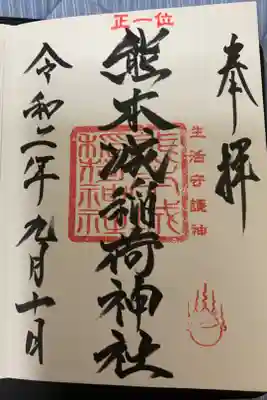 奉拝
生活守護神
正一位
熊本城稲荷神社
令和二年九月十日